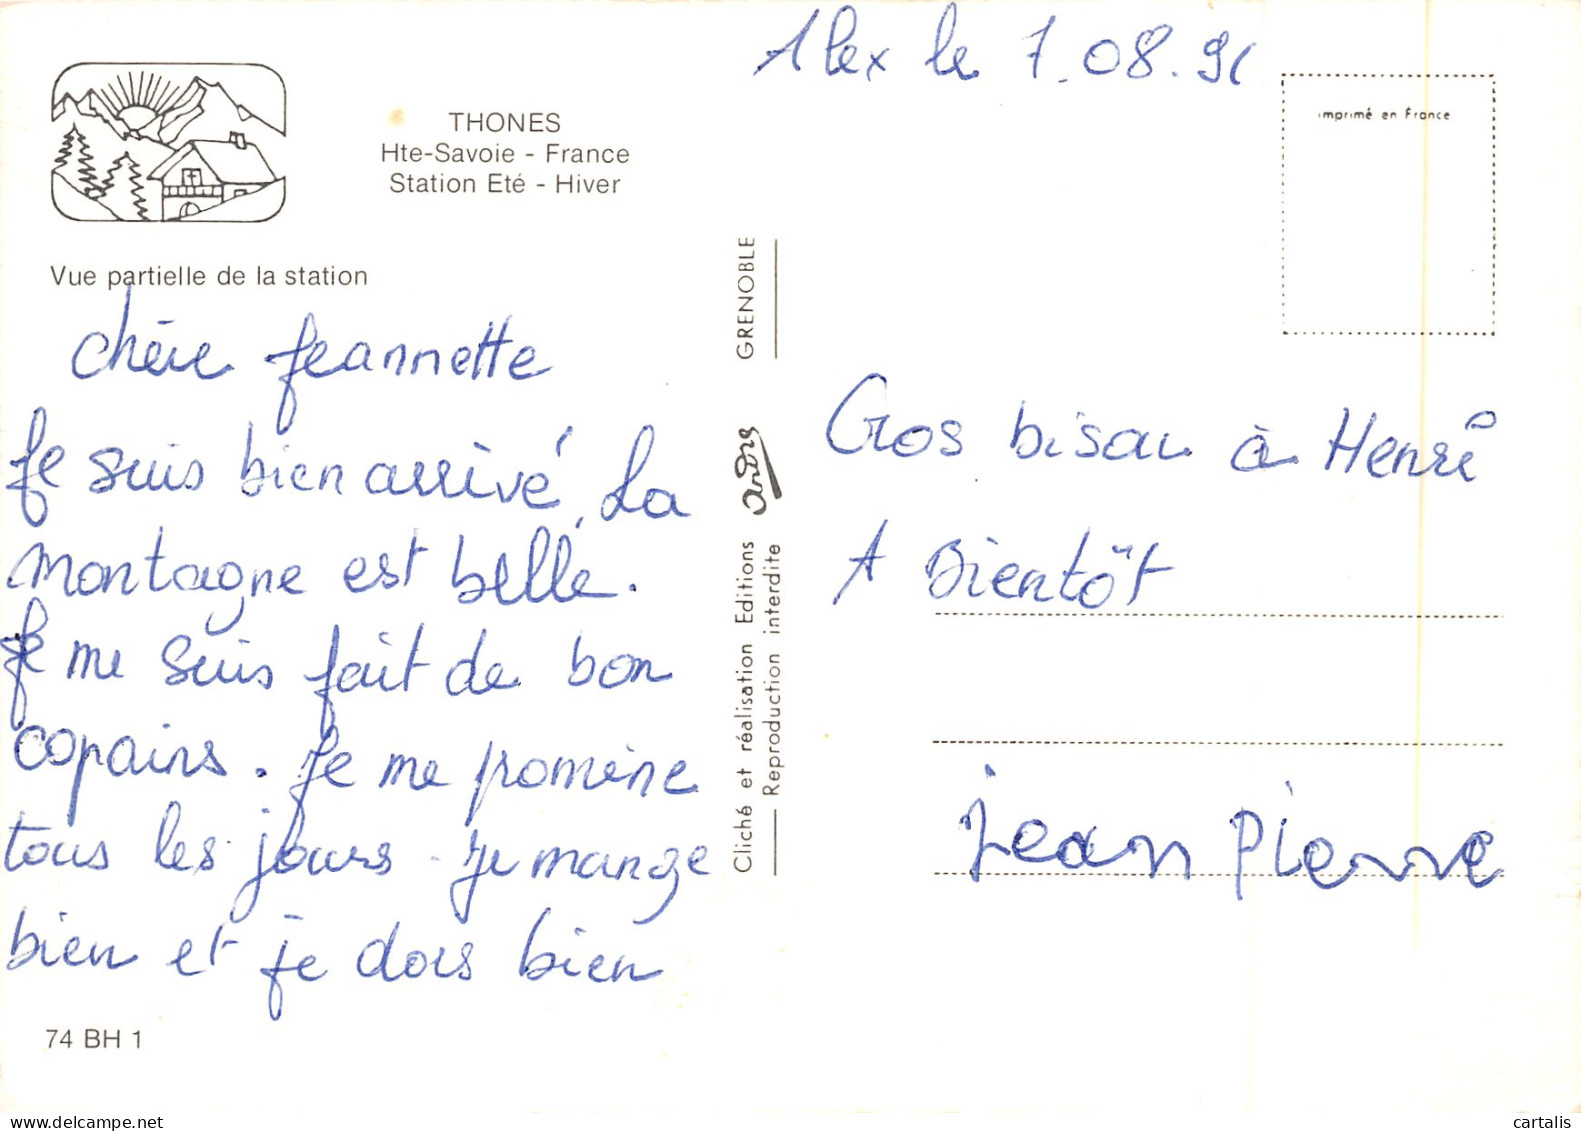 Alex le 7.08.91
imprimé en France
THONES
Hte-Savoie - France
Station Eté - Hiver
Vue partielle de la station
Chère Jeannette
Je suis bien arrivé, La
montagne est belle.
Je me suis fait de bon
copains. Je me promène
tous les jours. Je mange
bien et je dors bien
74 BH 1
Cliché et réalisation Editions André GRENOBLE
Reproduction interdite
Gros bisou à Henri
A Bientôt
jean Pierre
cartalis